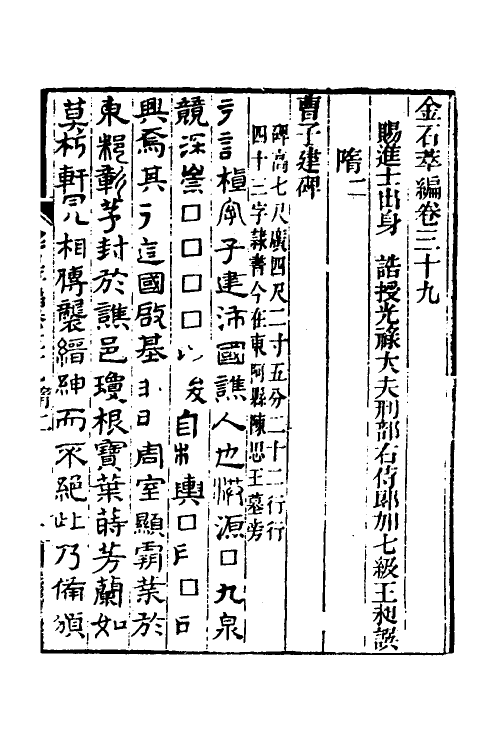 金石萃編卷三十九
賜進士出身 誥授光祿大夫刑部右侍郎加七級王昶譔
隋二
曹子建碑
碑高七尺廣四尺二寸五分二十二行行
四十三字隸書今在東阿縣陳思王墓旁
言植字子建沛國譙人也源□九泉
競深崇□□□□以自輿□□
興焉其國啟基曰周室顯霸業於
東彰芓封於譙邑瓊根寶葉蒔芳蘭如
莫朽軒冕相傳襲縉紳而不絕此乃備頒